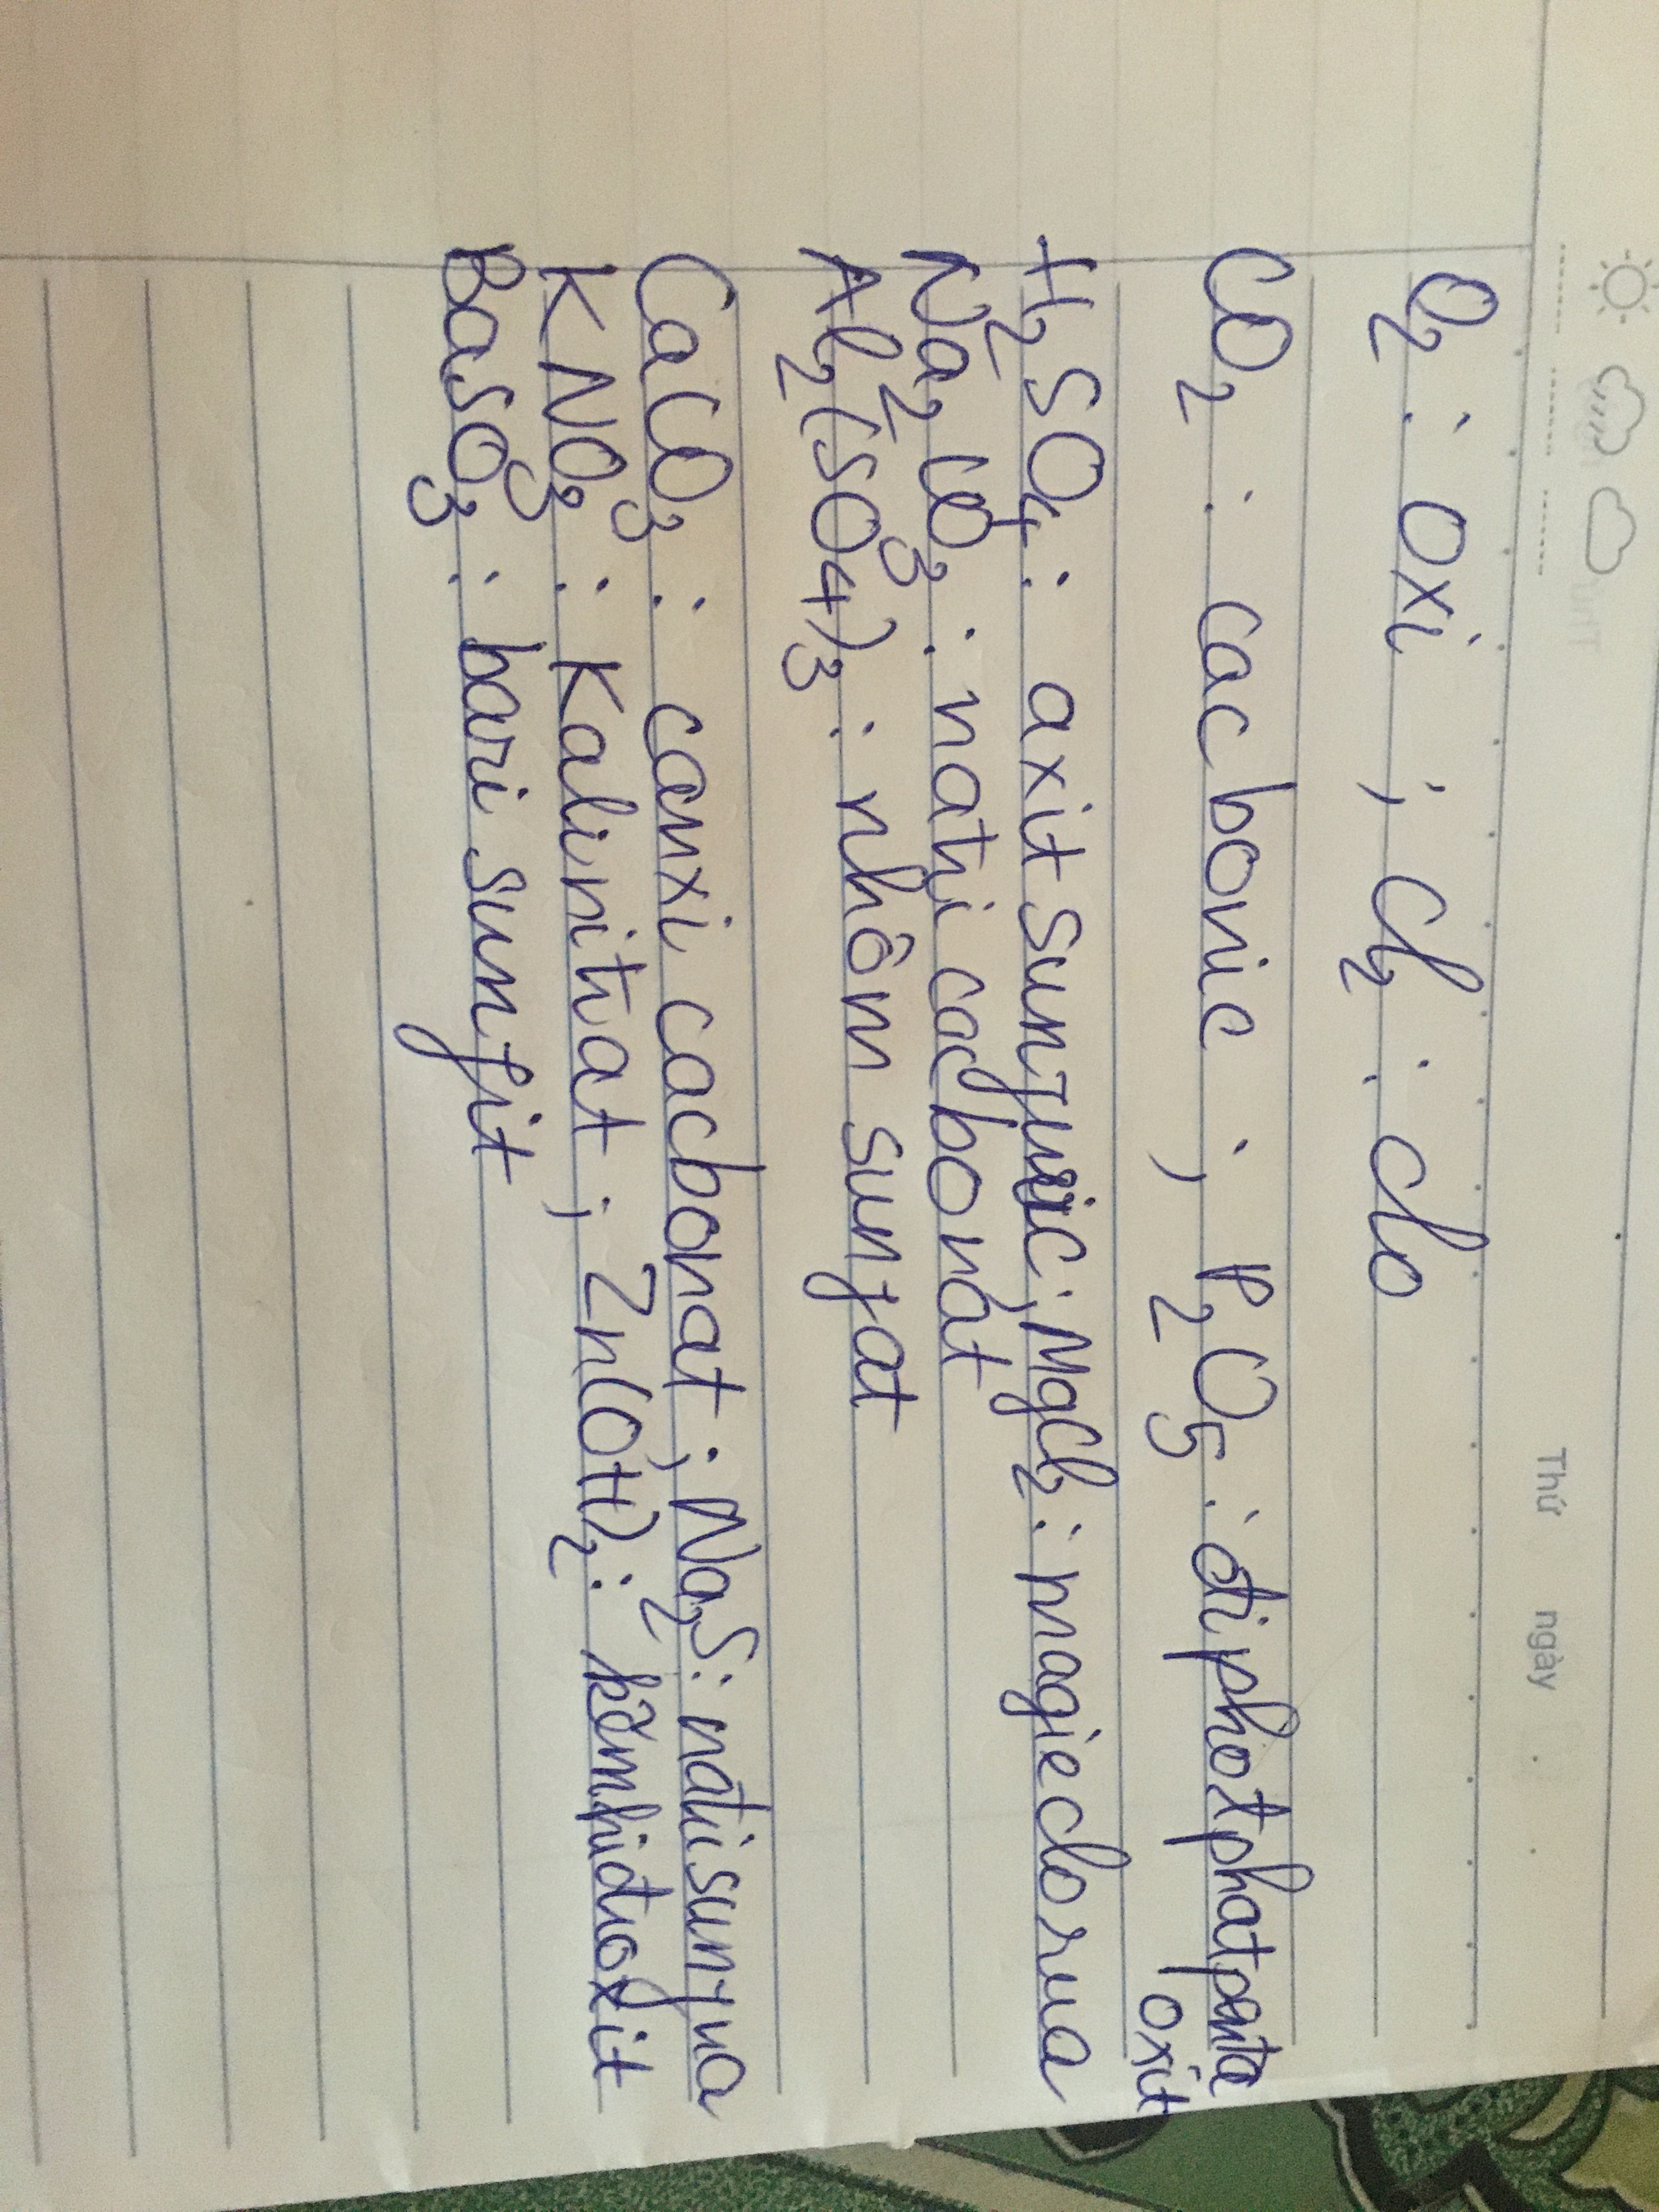 Thứ ngày
O2 : oxi ; Cl2 : clo
CO2 : cacbonic ; P2O5 : điphotphatpenta
oxit
H2SO4 : axit sunfuric ; MgCl2 : magie clorua
Na2CO3 : natri cacbonat
Al2(SO4)3 : nhôm sunfat
CaCO3 : canxi cacbonat ; Na2S : natri sunfua
KNO3 : Kali nitrat ; Zn(OH)2 : kẽm hiđroxit
BaSO3 : bari sunfit